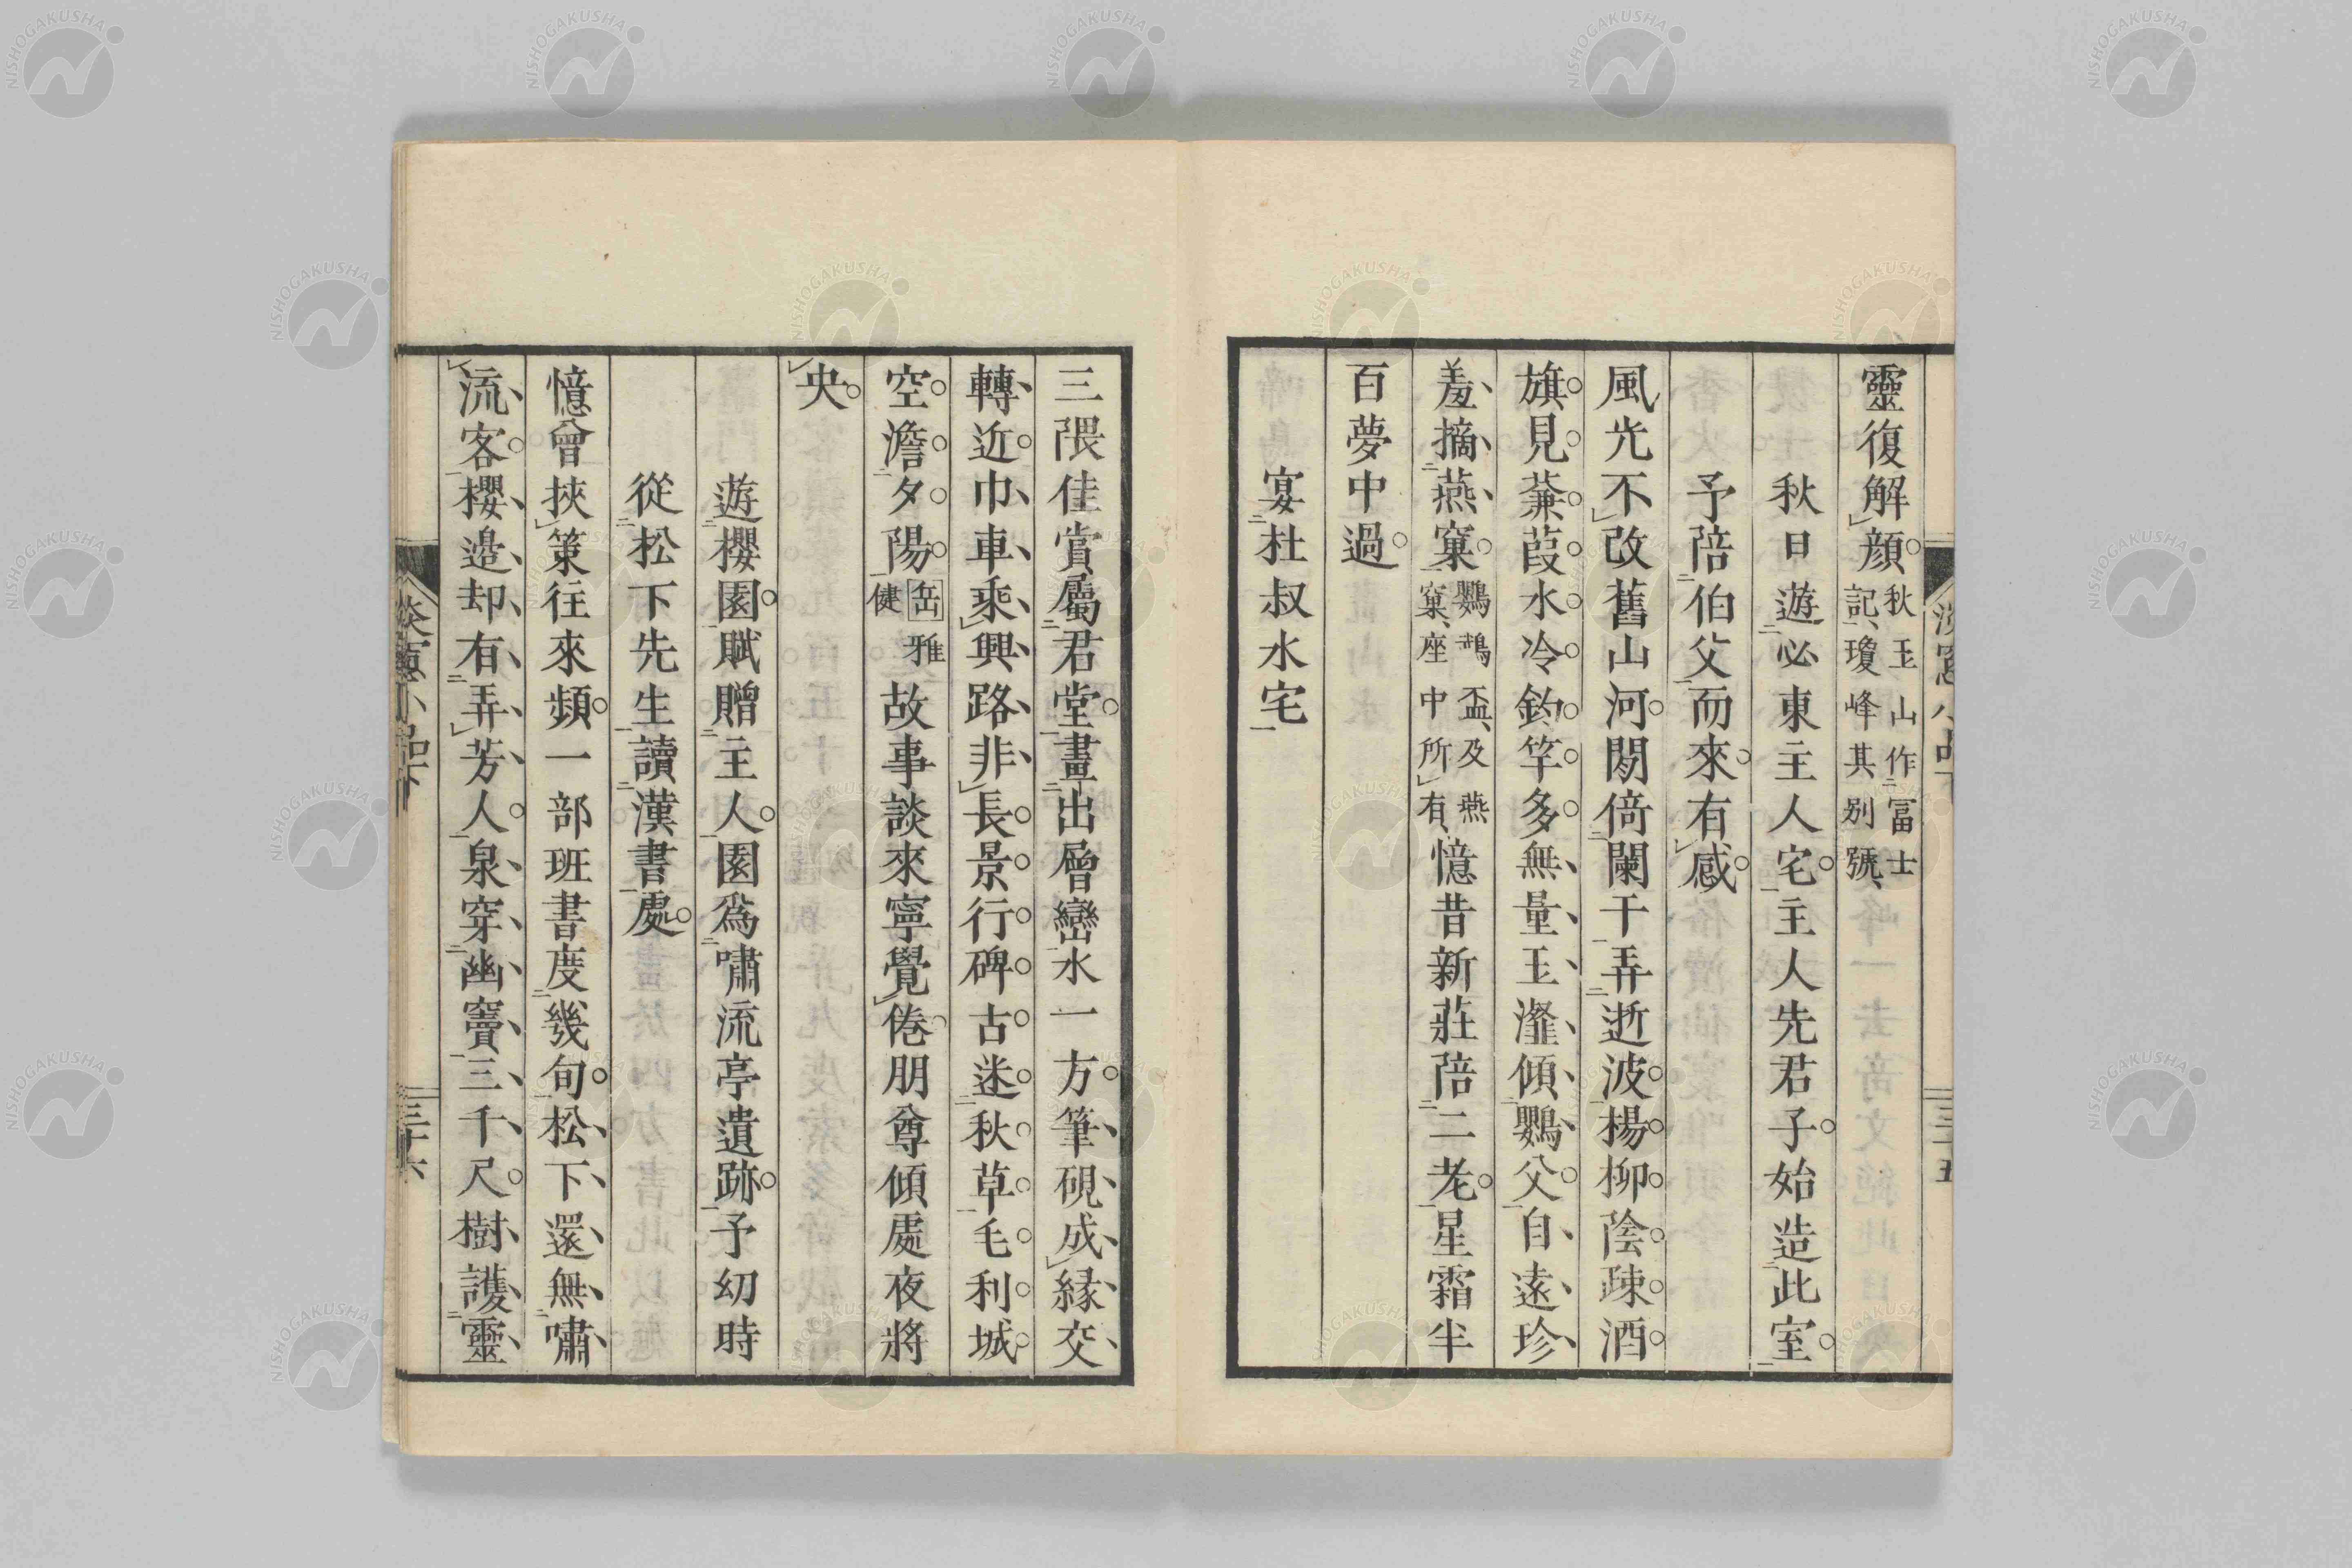 靈復解顏。秋玉山作富士記、瓊峰其別號、
秋日遊必東主人宅。主人先君子。始造此室。
予陪伯父而來。有感。
風光不改舊山河。閒倚闌干弄逝波。楊柳陰疎酒
旗見。蒹葭水冷釣竿多。無量玉灩傾鸚父。自遠珍
羞摘燕窠。鸚鵡盃、及燕窠、座中所有、憶昔新莊陪二老。星霜半
百夢中過。
宴杜叔水宅
三隈佳賞屬君堂。畫出層巒水一方。筆硯成緣交
轉近。巾車乘興路非長。景行碑古迷秋草。毛利城
空澹夕陽。岳雅健故事談來寧覺倦。朋尊傾處夜將
央。
遊櫻園。賦贈主人。園爲嘯流亭遺跡。予幼時
從松下先生讀漢書處。
憶曾挾策往來頻。一部班書度幾旬。松下還無嘯
流客。櫻邉却有弄芳人。泉穿幽竇三千尺。樹護靈
三十六
NISHOGAKUSHA